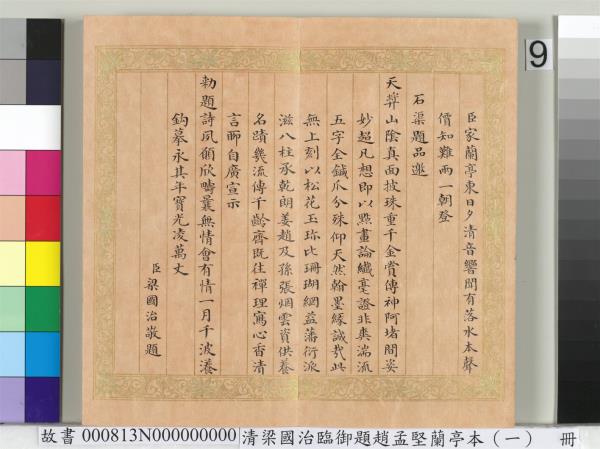 臣家蘭亭東日夕清音響閒有落水本聲
價知難兩一朝登
石渠題品邀
天筭山陰真面披珠重千金賞傳神阿堵間妄
妙超凡想即以點畫論纖毫證非爽湍流
五字全鍼爪分殊仰天然翰墨緣誠哉此
無上刻以松花玉珎比珊瑚網益藩衍派
滋八柱承乾朗姜趙及孫張烟雲資供養
名蹟幾流傳千齡齊既往禪理寫心香清
言聊自廣宣示
勅題詩夙願欣疇曩無情會有情一月千波瀁
鈎摹永其年寶光凌萬丈
臣梁國治敬題
9
故書 000813N000000000 清梁國治臨御題趙孟堅蘭亭本(一) 冊